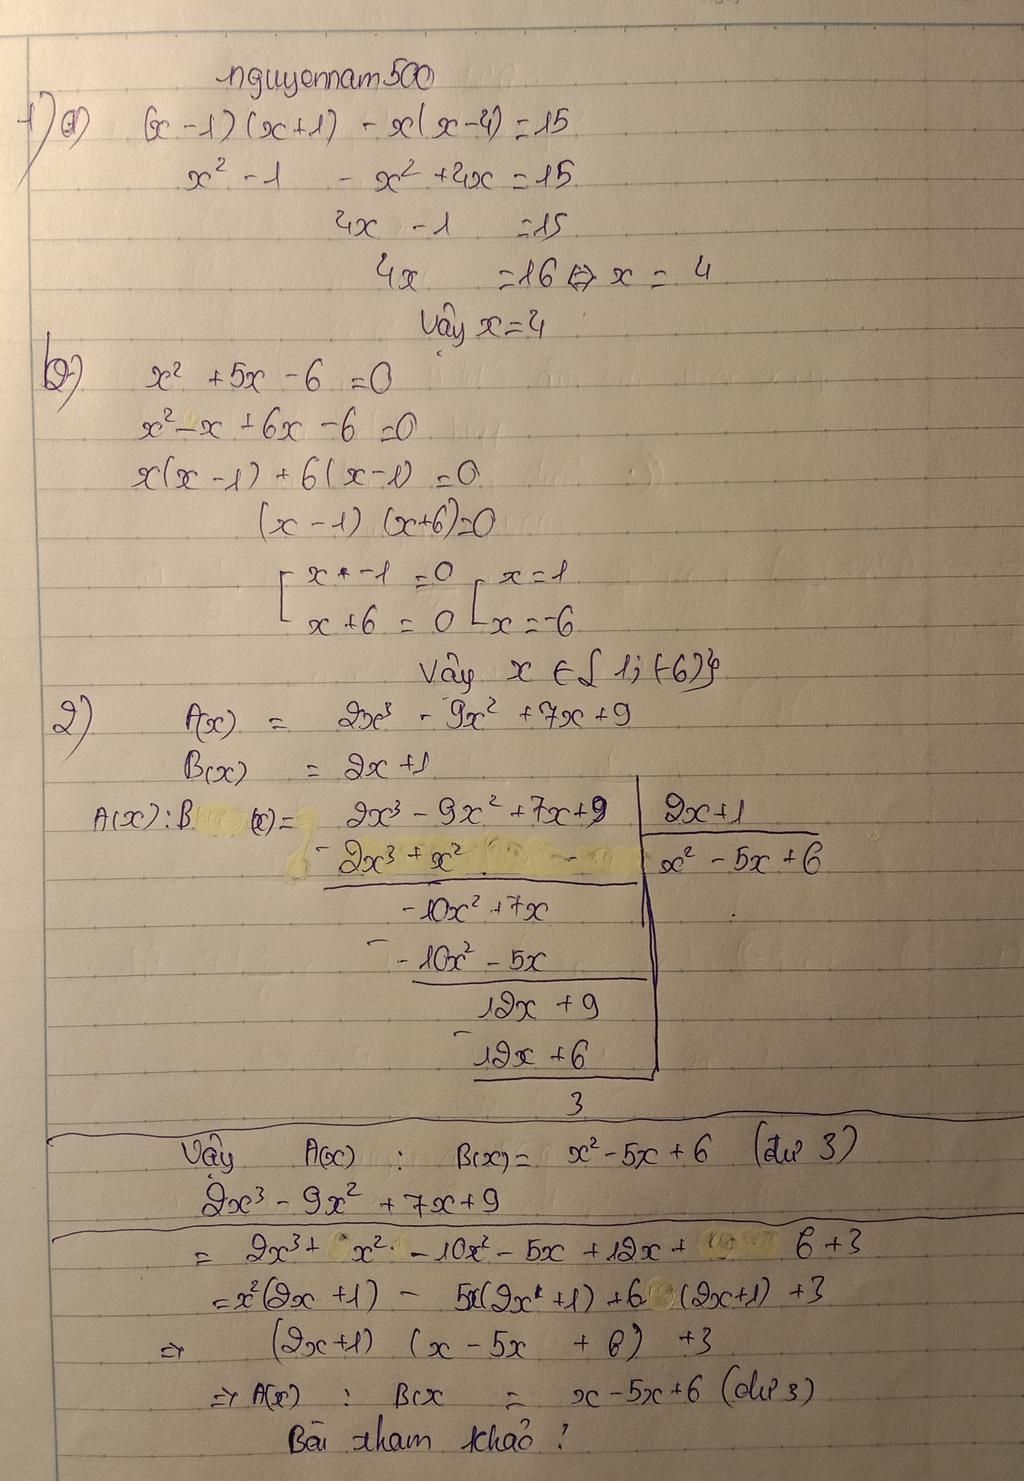 nguyennam500
1) a) (x - 1)(x + 1) - x(x - 4) = 15
x² - 1 - x² + 4x = 15
4x - 1 = 15
4x = 16 ⇔ x = 4
Vậy x = 4
b) x² + 5x - 6 = 0
x² - x + 6x - 6 = 0
x(x - 1) + 6(x - 1) = 0
(x - 1) (x + 6) = 0
[ x - 1 = 0 [ x = 1
x + 6 = 0 x = -6
Vậy x ∈ { 1; (-6)}
2) A(x) = 2x³ - 9x² + 7x + 9
B(x) = 2x + 1
A(x) : B(x) = 2x³ - 9x² + 7x + 9 | 2x + 1
- 2x³ + x² x² - 5x + 6
-10x² + 7x
- -10x² - 5x
12x + 9
- 12x + 6
3
Vậy A(x) : B(x) = x² - 5x + 6 (dư 3)
2x³ - 9x² + 7x + 9
= 2x³ + x² - 10x² - 5x + 12x + 6 + 3
= x²(2x + 1) - 5x(2x + 1) + 6(2x + 1) + 3
⇒ (2x + 1) (x - 5x + 6) + 3
⇒ A(x) : B(x = x - 5x + 6 (dư 3)
Bài tham khảo !